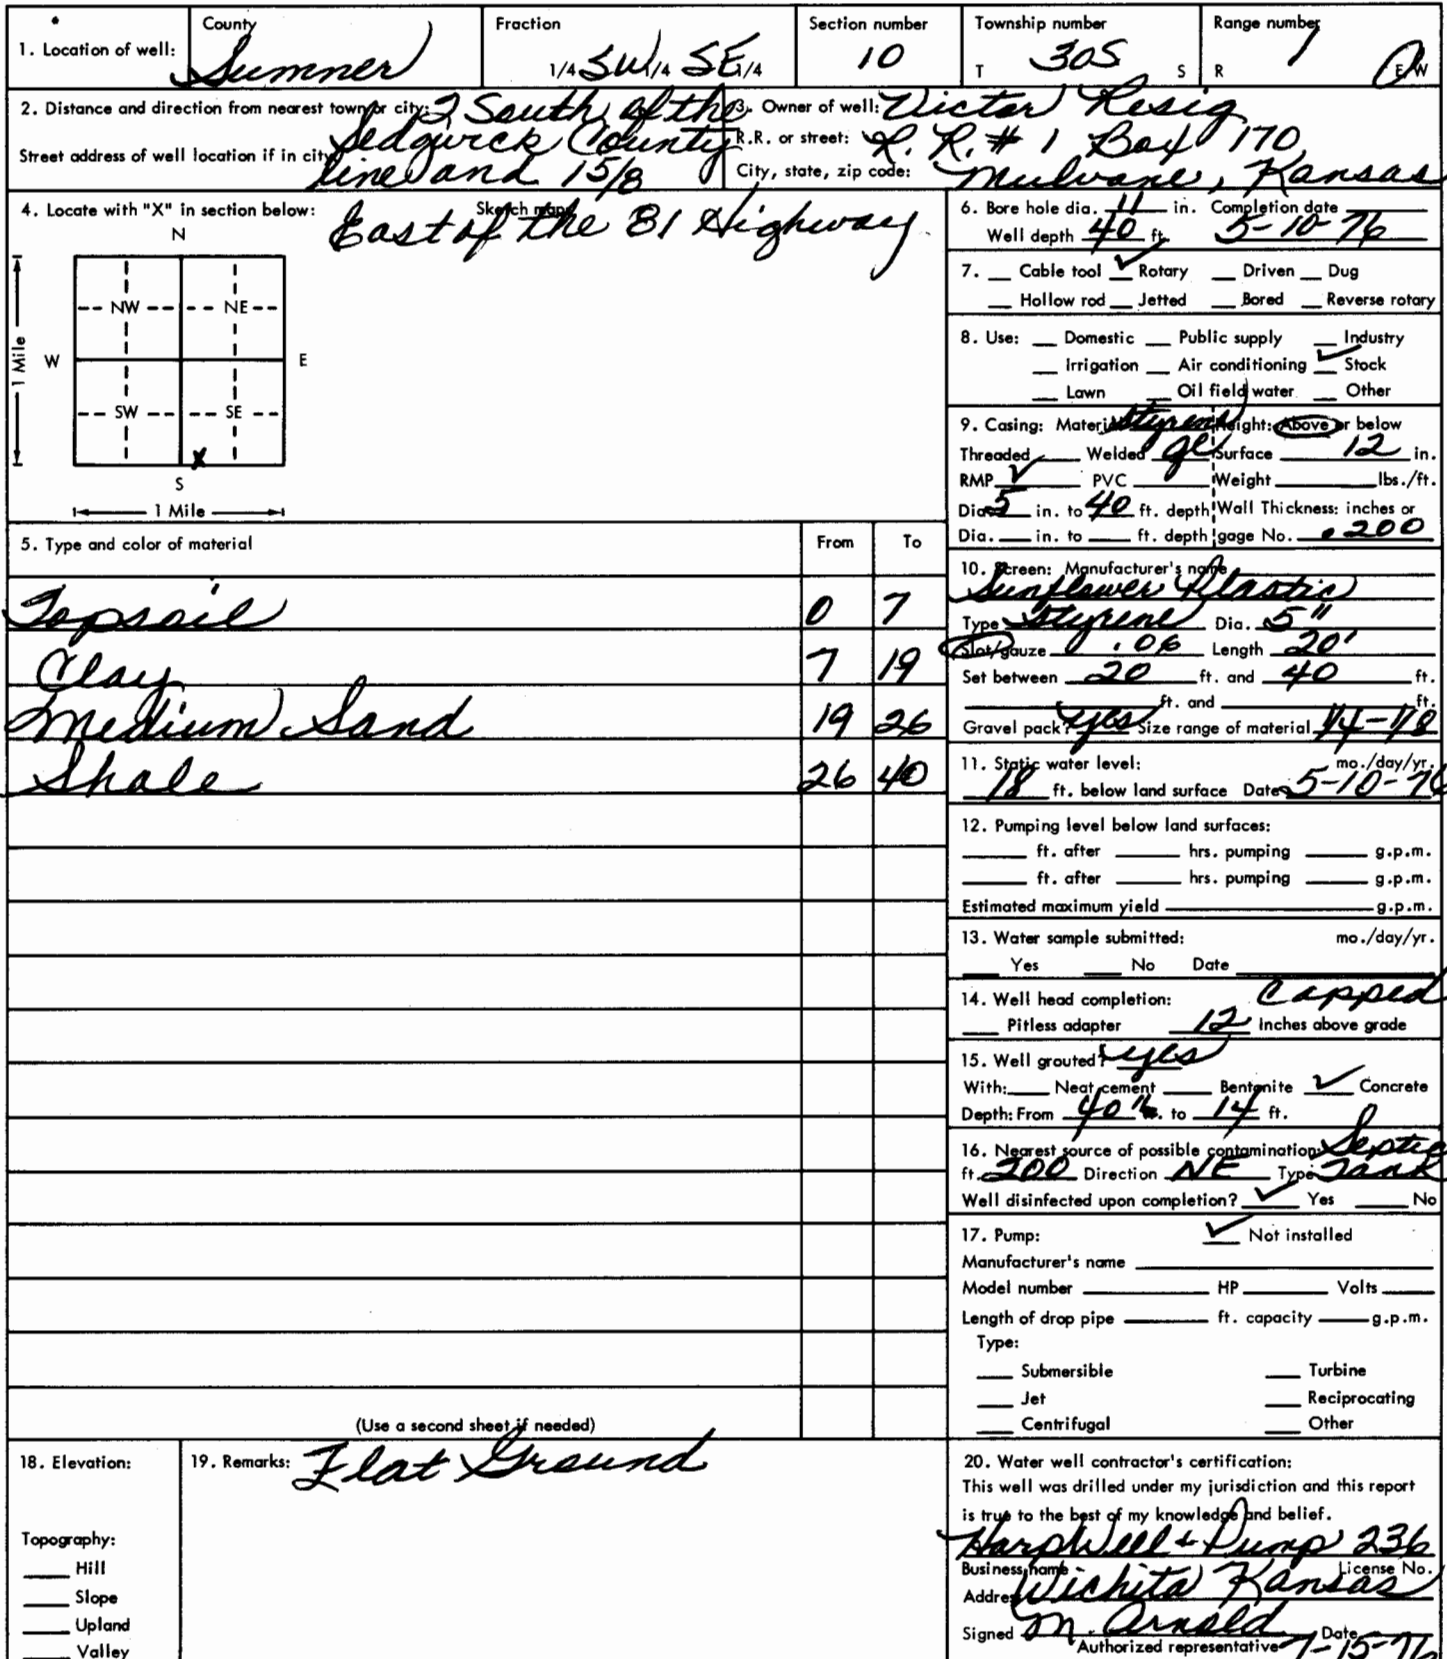 1. Location of well: County Sumner Fraction 1/4 SW 1/4 SE 1/4 Section number 10 Township number T 30S S Range number R 1 E/W
2. Distance and direction from nearest town or city: 2 South of the
Sedgwick County
Street address of well location if in city: line and 15/8
East of the 81 Highway
3. Owner of well: Victor Resig
R.R. or street: R. R. # 1 Box 170
City, state, zip code: Mulvane, Kansas
4. Locate with "X" in section below: Sketch map:
N
NW NE
W E
SW SE
X
S
1 Mile
1 Mile
5. Type and color of material From To
Topsoil 0 7
Clay 7 19
Medium Sand 19 26
Shale 26 40
(Use a second sheet if needed)
6. Bore hole dia. 11 in. Completion date
Well depth 40 ft. 5-10-76
7. Cable tool ✓ Rotary Driven Dug
Hollow rod Jetted Bored Reverse rotary
8. Use: Domestic Public supply Industry
Irrigation Air conditioning ✓ Stock
Lawn Oil field water Other
9. Casing: Material Styrene Height: Above or below
Threaded Welded Surface 12 in.
RMP ✓ PVC Weight lbs./ft.
Dia. 5 in. to 40 ft. depth Wall Thickness: inches or
Dia. in. to ft. depth gage No. .200
10. Screen: Manufacturer's name
Sunflower Plastic
Type Styrene Dia. 5"
Slot/gauze .06 Length 20'
Set between 20 ft. and 40 ft.
ft. and ft.
Gravel pack? yes Size range of material 1/4-1/8
11. Static water level: mo./day/yr.
18 ft. below land surface Date 5-10-76
12. Pumping level below land surfaces:
ft. after hrs. pumping g.p.m.
ft. after hrs. pumping g.p.m.
Estimated maximum yield g.p.m.
13. Water sample submitted: mo./day/yr.
Yes No Date
14. Well head completion: Capped
Pitless adapter 12 Inches above grade
15. Well grouted? yes
With: Neat cement Bentonite ✓ Concrete
Depth: From 40" to 14 ft.
16. Nearest source of possible contamination: Septic
ft. 200 Direction NE Type Tank
Well disinfected upon completion? ✓ Yes No
17. Pump: ✓ Not installed
Manufacturer's name
Model number HP Volts
Length of drop pipe ft. capacity g.p.m.
Type:
Submersible Turbine
Jet Reciprocating
Centrifugal Other
18. Elevation:
Topography:
Hill
Slope
Upland
Valley
19. Remarks: Flat Ground
20. Water well contractor's certification:
This well was drilled under my jurisdiction and this report
is true to the best of my knowledge and belief.
Harp Well & Pump 236
Business name License No.
Address Wichita Kansas
Signed M. Arnold Date 7-15-76
Authorized representative